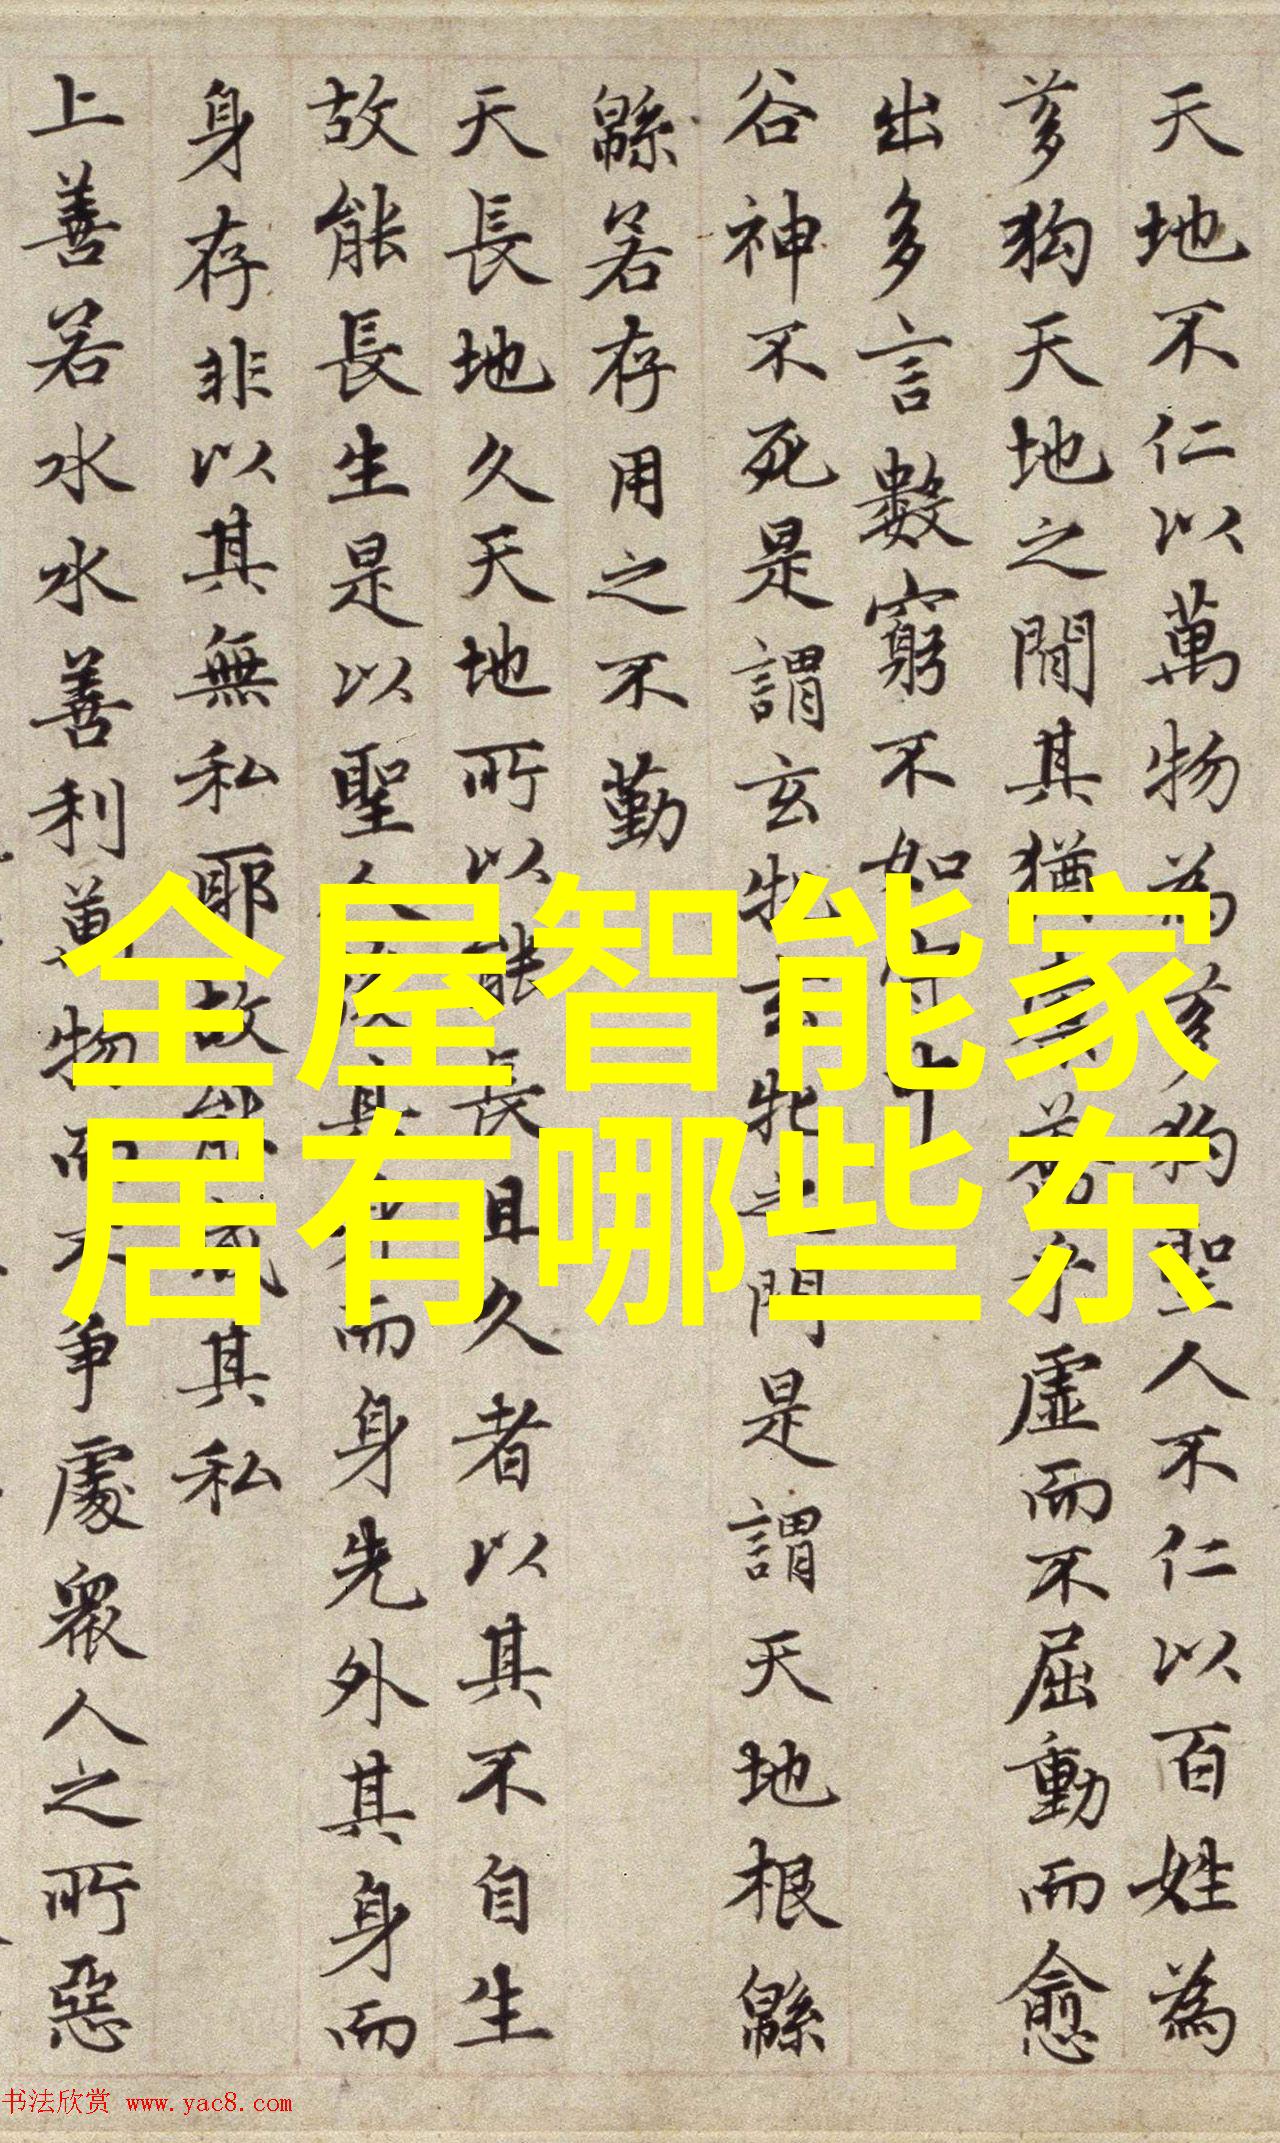 天地不仁以萬物為芻狗聖人不仁以百姓為
芻狗天地之間其猶橐籥乎虛而不屈動而愈
出多言數窮不如守中
谷神不死是謂玄牝玄牝之門是謂天地根緜
緜若存用之不勤
天長地久天地所以能長且久者以其不自生
故能長生是以聖人後其身而身先外其身而
身存非以其無私耶故能成其私
上善若水水善利萬物而不爭處衆人之所惡
全屋智能家
居有哪些东
书法欣赏 www.yac8.com